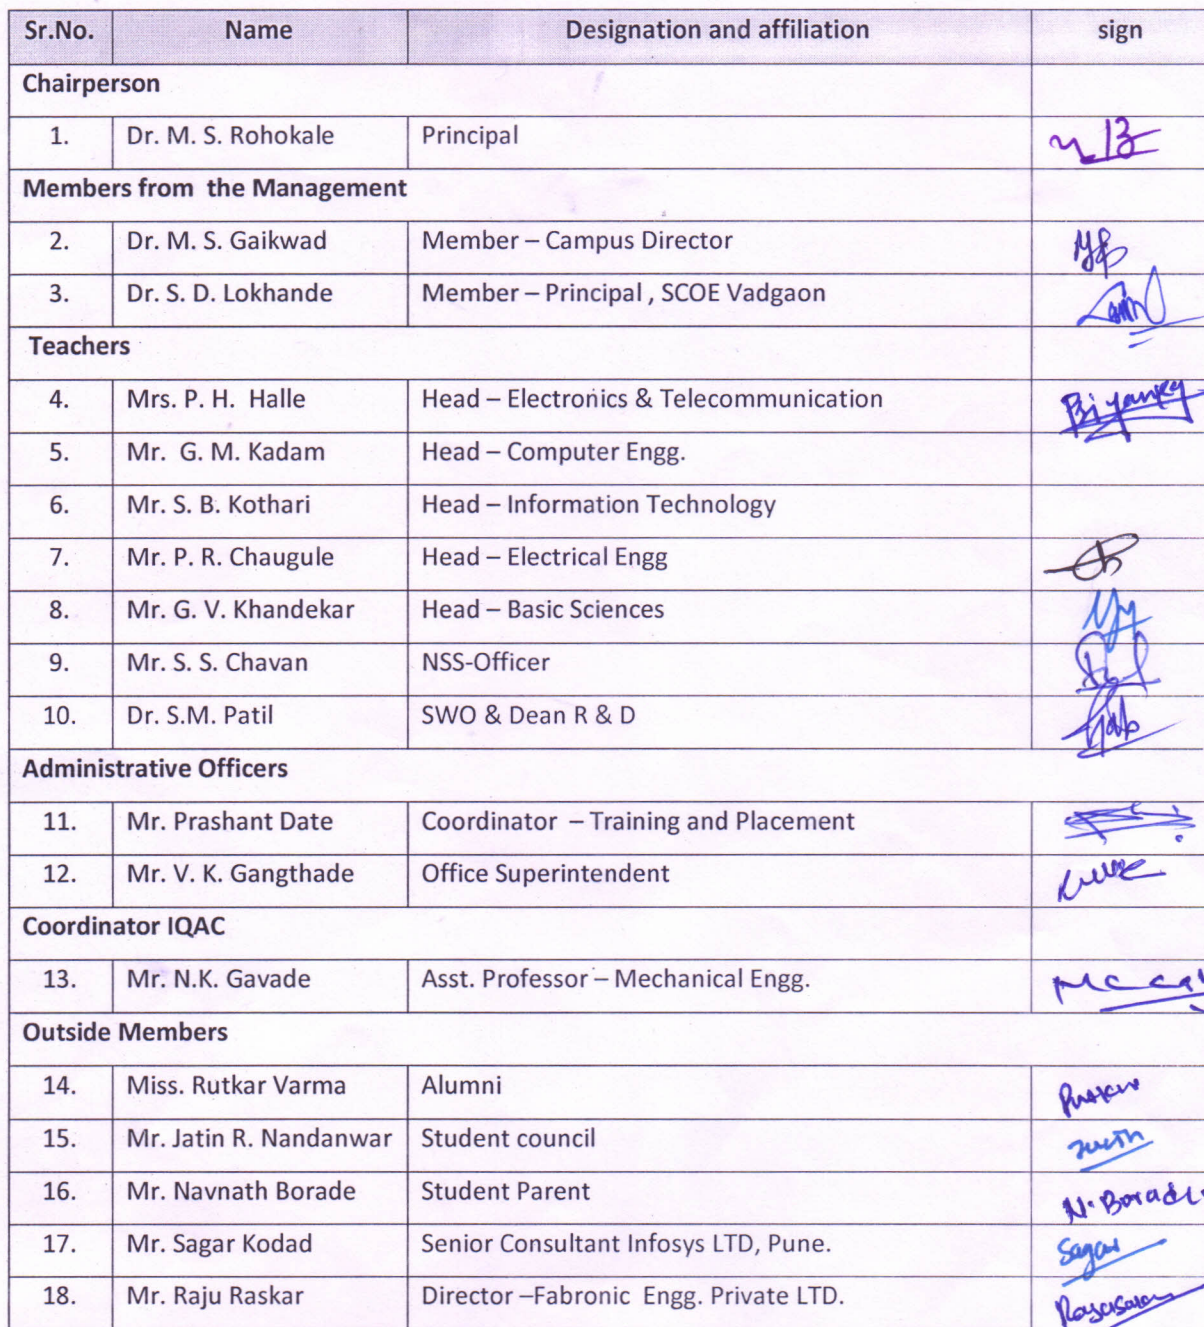 Sr.No. Name Designation and affiliation sign
Chairperson
1. Dr. M. S. Rohokale Principal
Members from the Management
2. Dr. M. S. Gaikwad Member – Campus Director
3. Dr. S. D. Lokhande Member – Principal , SCOE Vadgaon
Teachers
4. Mrs. P. H. Halle Head – Electronics & Telecommunication
5. Mr. G. M. Kadam Head – Computer Engg.
6. Mr. S. B. Kothari Head – Information Technology
7. Mr. P. R. Chaugule Head – Electrical Engg
8. Mr. G. V. Khandekar Head – Basic Sciences
9. Mr. S. S. Chavan NSS-Officer
10. Dr. S.M. Patil SWO & Dean R & D
Administrative Officers
11. Mr. Prashant Date Coordinator – Training and Placement
12. Mr. V. K. Gangthade Office Superintendent
Coordinator IQAC
13. Mr. N.K. Gavade Asst. Professor – Mechanical Engg.
Outside Members
14. Miss. Rutkar Varma Alumni
15. Mr. Jatin R. Nandanwar Student council
16. Mr. Navnath Borade Student Parent
17. Mr. Sagar Kodad Senior Consultant Infosys LTD, Pune. Sagar
18. Mr. Raju Raskar Director –Fabronic Engg. Private LTD.